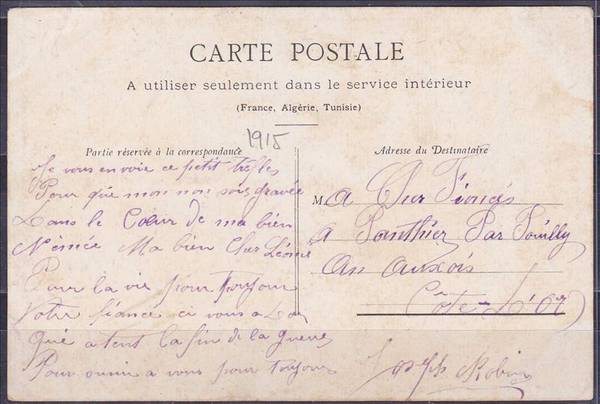 CARTE POSTALE
A utiliser seulement dans le service intérieur
(France, Algérie, Tunisie)
1915
Partie réservée à la correspondance
Je vous envoie ce petit trefles
Pour que mon non sois gravée
Dans le Cœur de ma bien
N'emée Ma bien Cher Léonie
Pour la vie pour toujour
Votre fiance ci vous a
Qui atent la fin de la guerre
Pour ounir a vous pour toujour
Adresse du Destinataire
M. A Cher
A Panthier Par Pouilly
An Auxois
Côte-D'Or
Joseph Robin